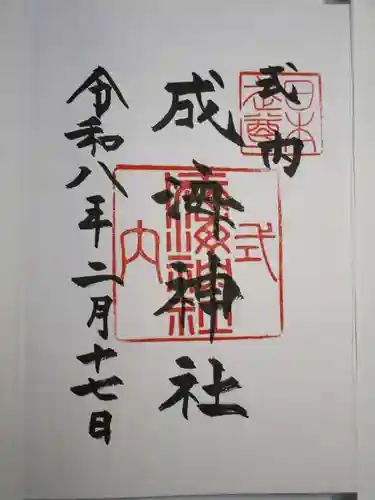 式内
日本武尊
成海神社
式内
成海神社
令和八年二月十七日